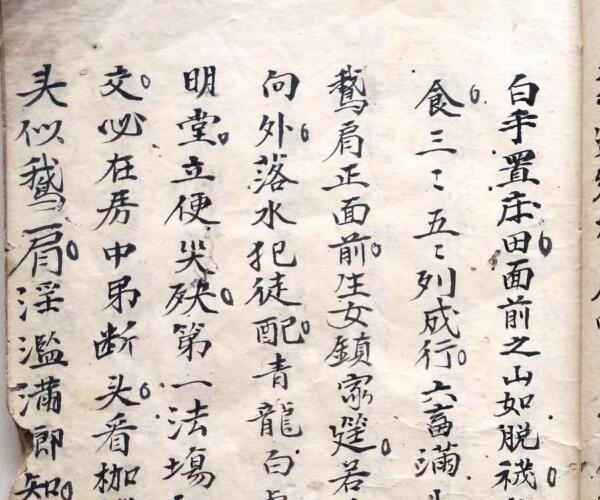 白手置庄田面前之山如脱襪
食三々五々列成行六畜滿山
鵞肩正面前生女鎮家筵若
向外落水犯徒配青龍白虎
明堂立便哭殃第一法場
交必在房中弟断头看枷
头似鵞肩淫濫滿郎知